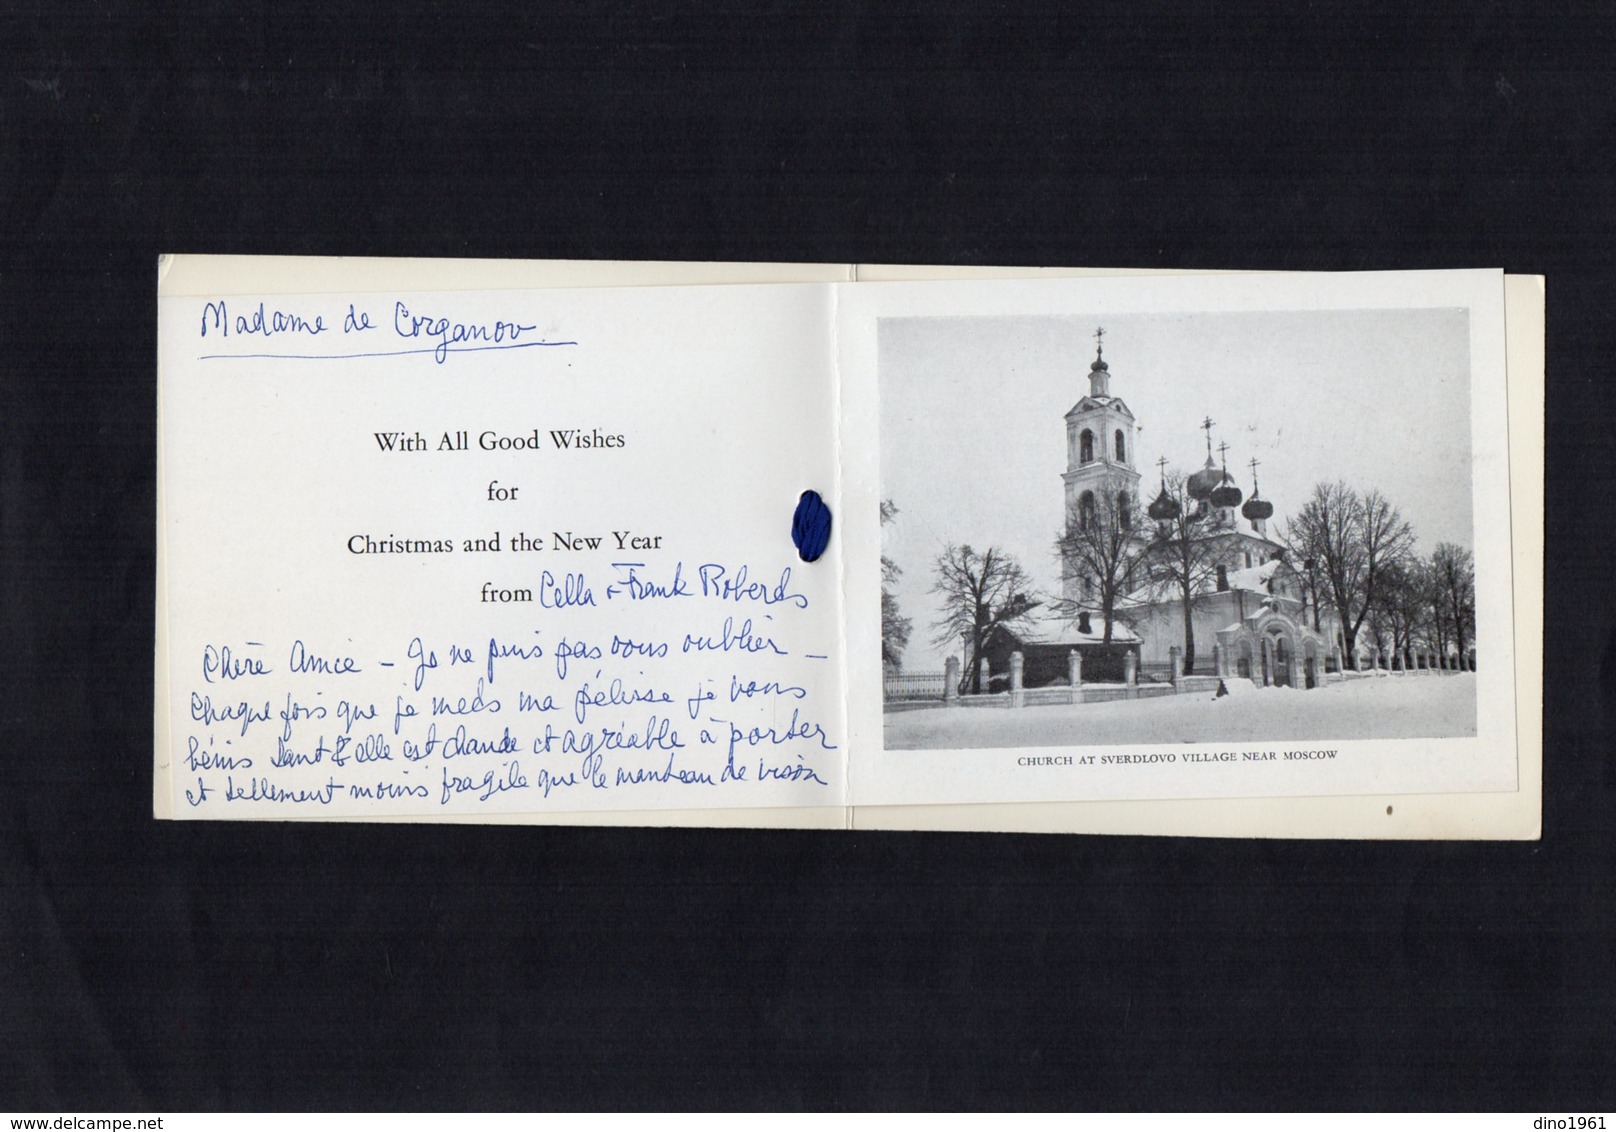 Madame de Corganov
With All Good Wishes
for
Christmas and the New Year
from Cella & Frank Roberds
Chère Amie - Je ne puis pas vous oublier -
Chaque fois que je mets ma pélisse je vous
bénis tant elle est chaude et agréable à porter
et tellement moins fragile que le manteau de vison
CHURCH AT SVERDLOVO VILLAGE NEAR MOSCOW
delcampe.net
dino1961